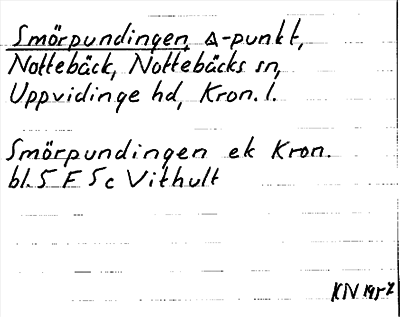 Smörpundingen, △-punkt,
Nottebäck, Nottebäcks sn,
Uppvidinge hd, Kron. l.
Smörpundingen ek Kron.
bl. 5 F 5 c Vithult
KN 1957